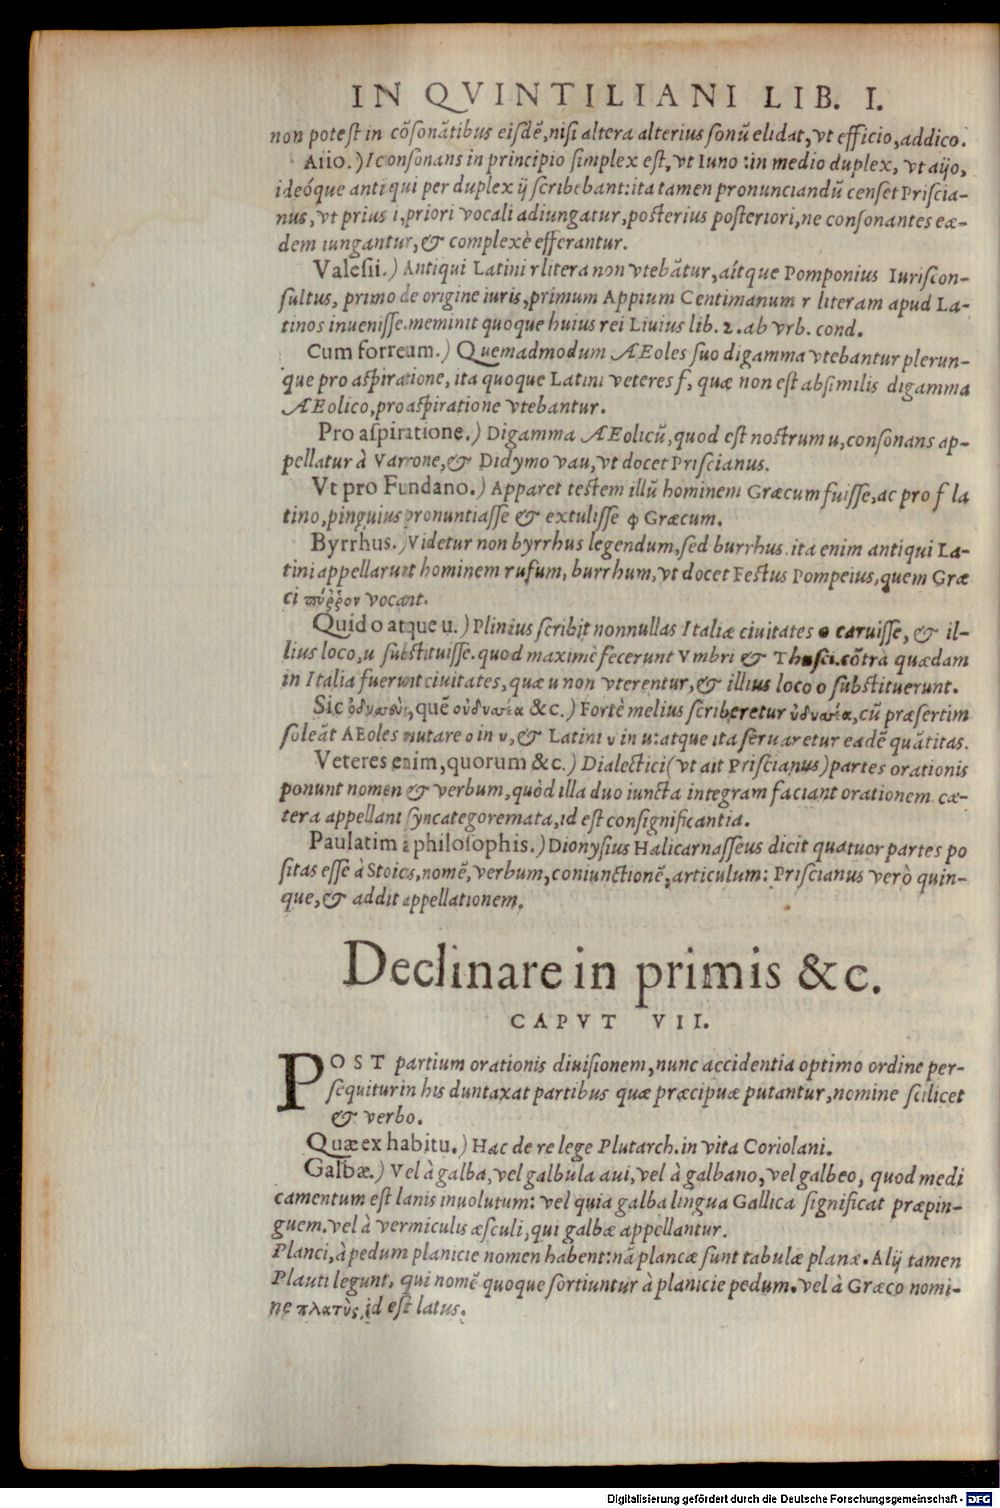 IN QVINTILIANI LIB. I.
non potest in cõsonãtibus eisdẽ, nisi altera alterius sonũ elidat, vt efficio, addico.
Aiio.) I consonans in principio simplex est, vt Iuno : in medio duplex, vt aijo,
ideóque antiqui per duplex ij scribebant: ita tamen pronunciandũ censet Priscia-
nus, vt prius i, priori vocali adiungatur, posterius posteriori, ne consonantes eæ-
dem iungantur, & complexè efferantur.
Valesii.) Antiqui Latini r litera non vtebãtur, aítque Pomponius Iuriscon-
sultus, primo de origine iuris, primum Appium Centimanum r literam apud La-
tinos inuenisse. meminit quoque huius rei Liuius lib. 2. ab vrb. cond.
Cum forreum.) Quemadmodum AEoles suo digamma vtebantur plerun-
que pro aspiratione, ita quoque Latini veteres f, quæ non est absimilis digamma
AEolico, pro aspiratione vtebantur.
Pro aspiratione.) Digamma AEolicũ, quod est nostrum u, consonans ap-
pellatur à Varrone, & Didymo vau, vt docet Priscianus.
Vt pro Fundano.) Apparet testem illũ hominem Græcum fuisse, ac pro f la
tino, pinguius pronuntiasse & extulisse φ Græcum.
Byrrhus.) Videtur non byrrhus legendum, sed burrhus. ita enim antiqui La-
tini appellarunt hominem rufum, burrhum, vt docet Festus Pompeius, quem Græ
ci πύῤῥον vocant.
Quid o atque u.) Plinius scribit nonnullas Italiæ ciuitates o caruisse, & il-
lius loco, u substituisse. quod maximè fecerunt Vmbri & Thusci. cõtrà quædam
in Italia fuerunt ciuitates, quæ u non vterentur, & illius loco o substituerunt.
Sic ὀδυσσεὺς, quẽ οὐδυσσέα &c.) Fortè melius scriberetur ὑδυσσέα, cũ præsertim
soleãt AEoles mutare o in v, & Latini v in u: atque ita seruaretur eadẽ quãtitas.
Veteres enim, quorum &c.) Dialectici (vt ait Priscianus) partes orationis
ponunt nomen & verbum, quòd illa duo iuncta integram faciant orationem. cæ-
tera appellant syncategoremata, id est consignificantia.
Paulatim à philosophis.) Dionysius Halicarnasseus dicit quatuor partes po
sitas esse à Stoics, nomẽ, verbum, coniunctionẽ, articulum: Priscianus verò quin-
que, & addit appellationem.
Declinare in primis &c.
CAPVT VII.
POST partium orationis diuisionem, nunc accidentia optimo ordine per-
sequitur in his duntaxat partibus quæ præcipuæ putantur, nomine scilicet
& verbo.
Quæ ex habitu.) Hac de re lege Plutarch. in vita Coriolani.
Galbæ.) Vel à galba, vel galbula aui, vel à galbano, vel galbeo, quod medi
camentum est lanis inuolutum: vel quia galba lingua Gallica significat præpin-
guem. vel à vermiculis æsculi, qui galbæ appellantur.
Planci, à pedum planicie nomen habent: nã plancæ sunt tabulæ planæ. Alij tamen
Plauti legunt, qui nomẽ quoque sortiuntur à planicie pedum. vel à Græco nomi-
ne πλατὺς, id est latus.
Digitalisierung gefördert durch die Deutsche Forschungsgemeinschaft - DFG